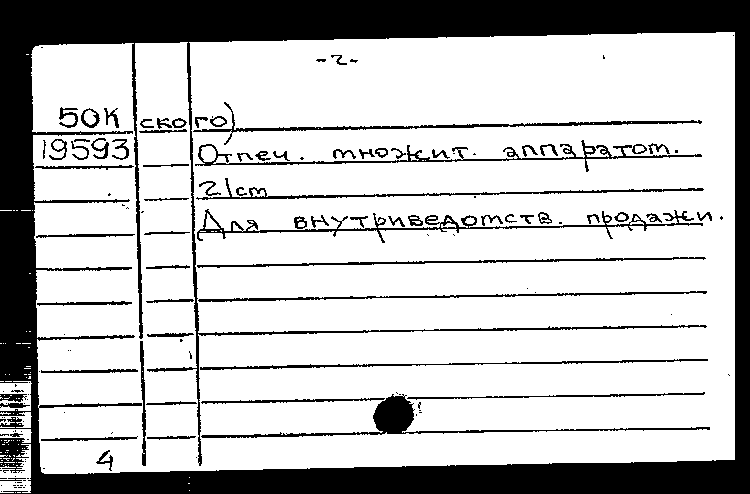 -2-
50К ского)
19593 Отпеч. множит. аппаратом.
21cm
Для внутриведомств. продажи.
4